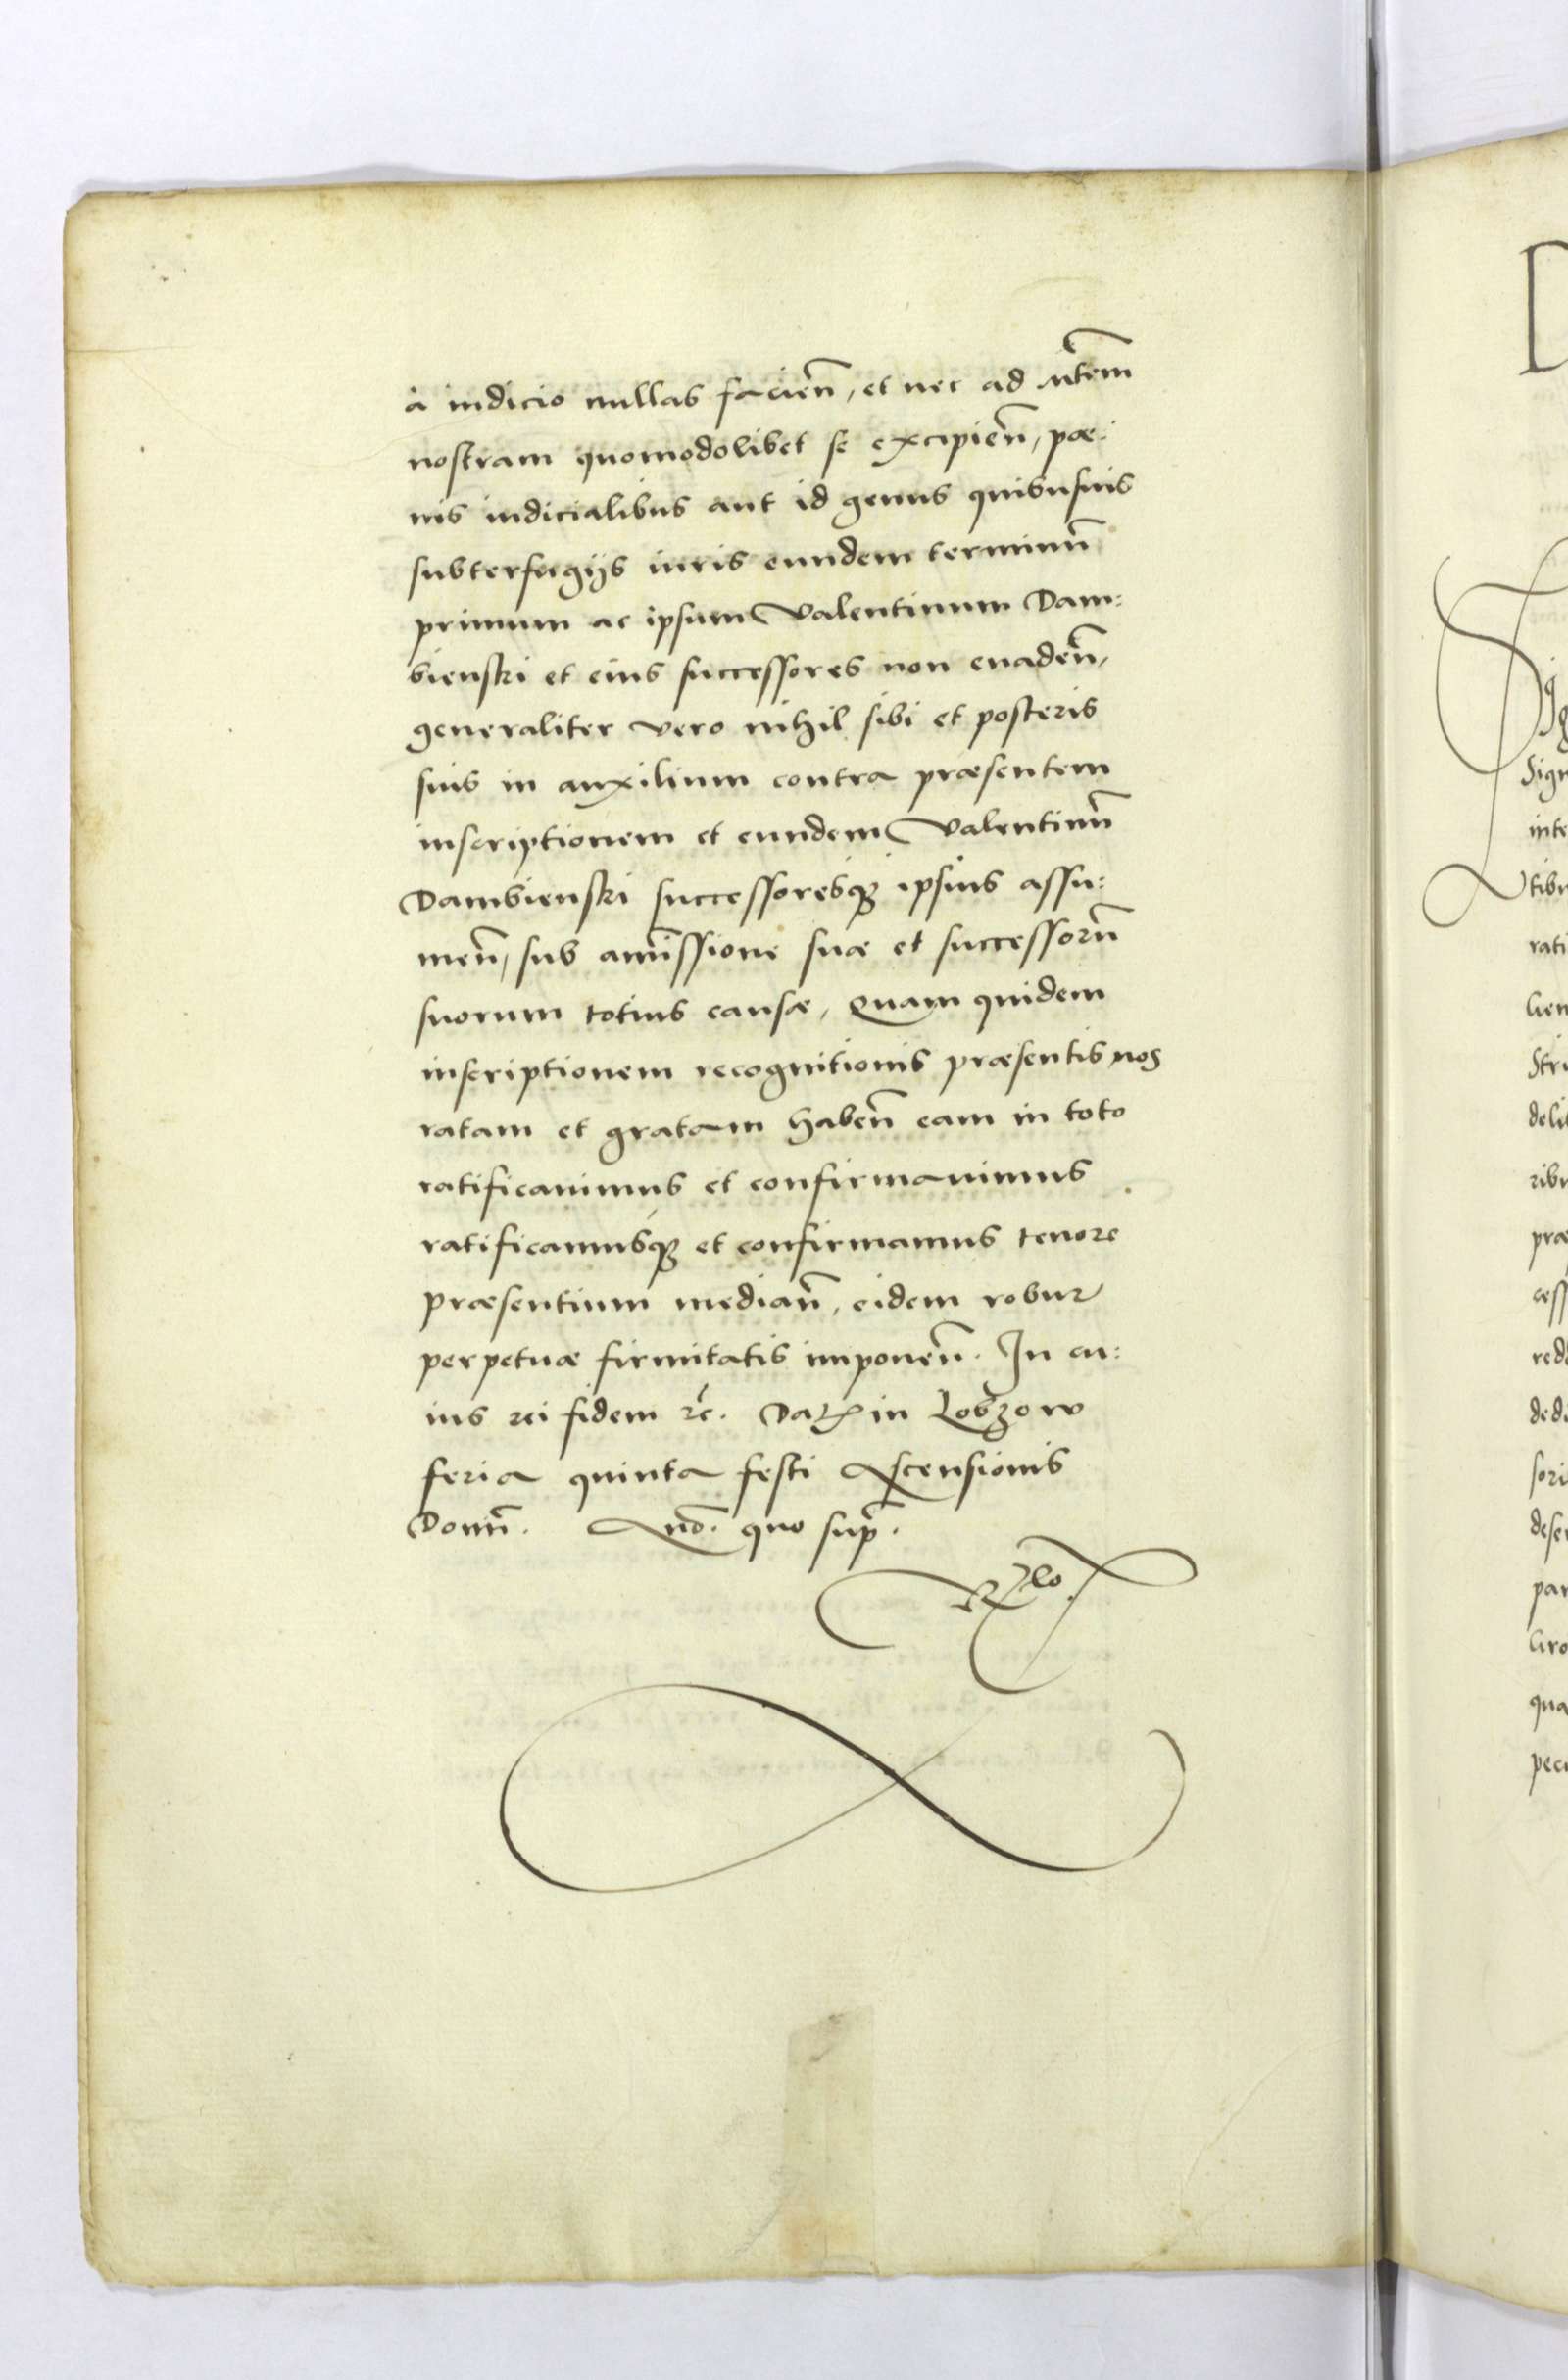 à iudicio nullas facien̄, et nec ad Mtem̄
nostram quomodolibet se excipien̄, poe:
nis iudicialibus aut id genus quibusuis
subterfugijs iuris eundem terminū
primum ac ipsum Valentinum Dam:
bienski et eius successores non euaden̄,
generaliter vero nihil sibi et posteris
suis in auxilium contra præsentem
inscriptionem et eundem Valentinū
Dambienski successoresq́ꝫ ipsius assu:
men̄, sub amissione suæ et successorū
suorum totius causæ, Quam quidem
inscriptionem recognitionis præsentis nos
ratam et gratam haben̄ eam in toto
ratificauimus et confirmauimus
ratificamusq́ꝫ et confirmamus tenore
præsentium median̄, eidem robur
perpetuæ firmitatis imponen̄. In cu:
ius rei fidem ꝛc̄. Datꝭ in Lobzow
feria quinta festi Ascensionis
Domī. Anō. quo sup̄.
Rꝛlo.
Sign
inte
tibu
rati
lien
Stri
delib
ribu
præ
cess
redd
dedi
sori
dese
par
Gro
qua
pecu